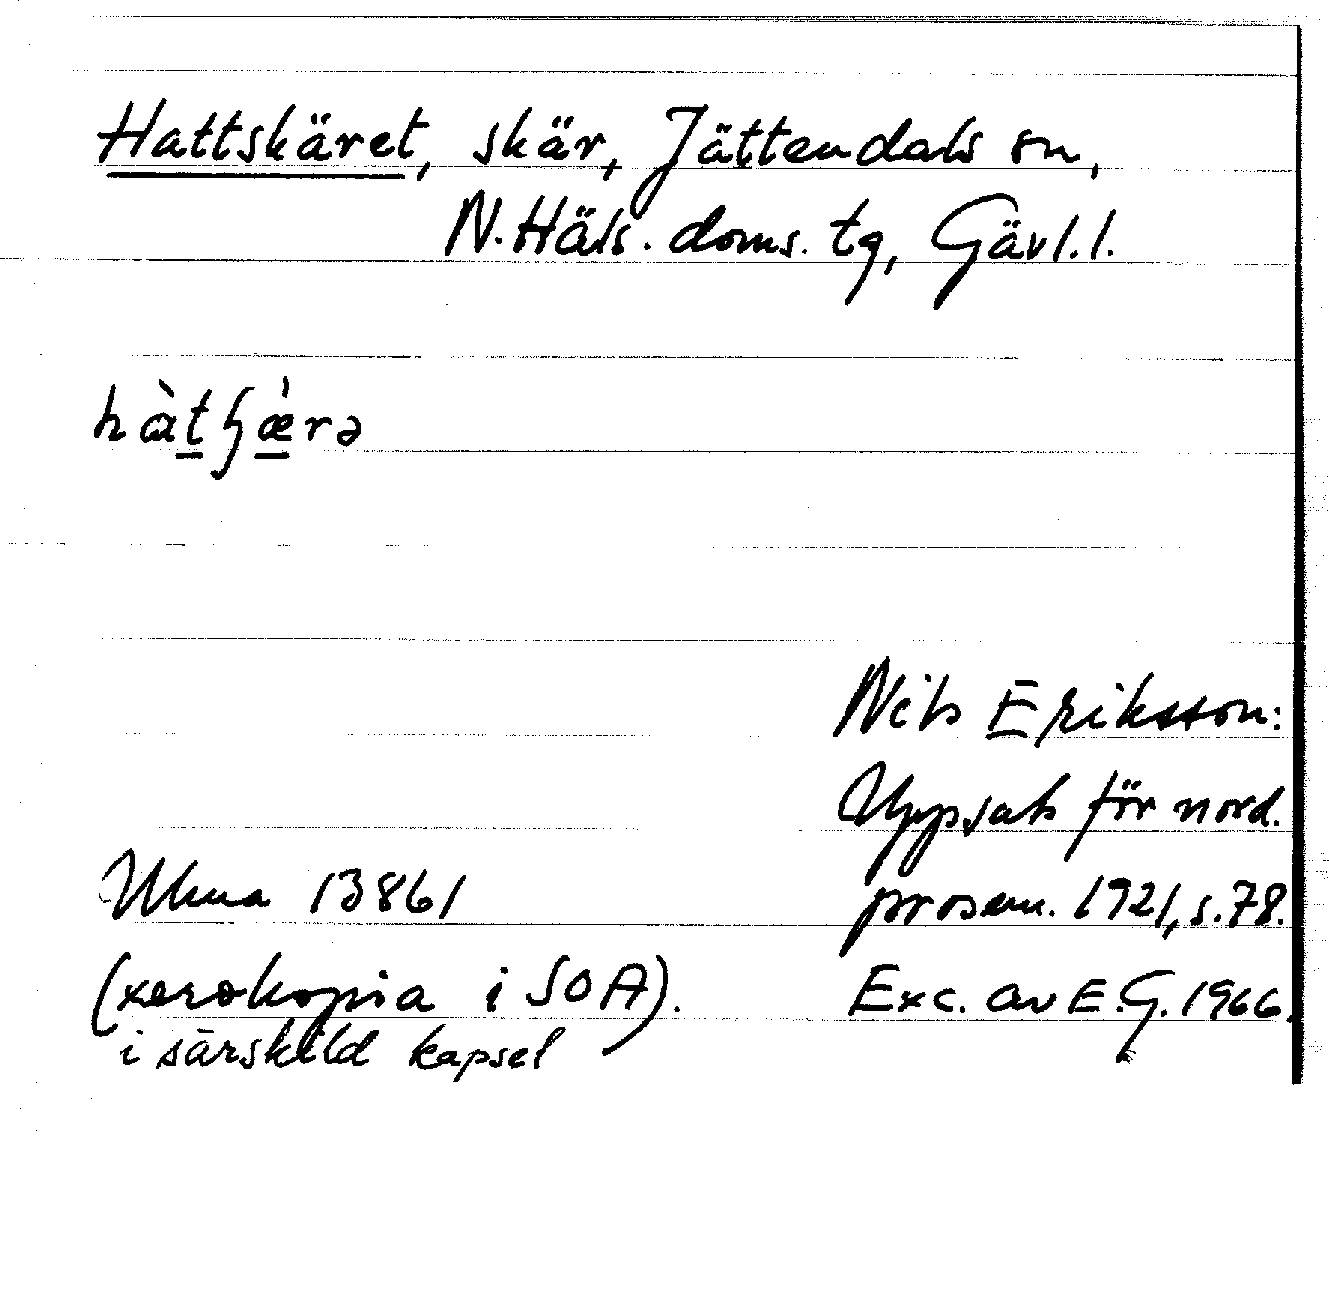 Hattskäret, skär, Jättendals sn,
N. Häls. doms. tg, Gävl. l.
hàtʃæ̀rə
Nils Eriksson:
Uppsats för nord.
prosem. 1921, s. 78.
Ulma 13861
(xerokopia i SOA).
i särskild kapsel
Exc. av E. G. 1966.